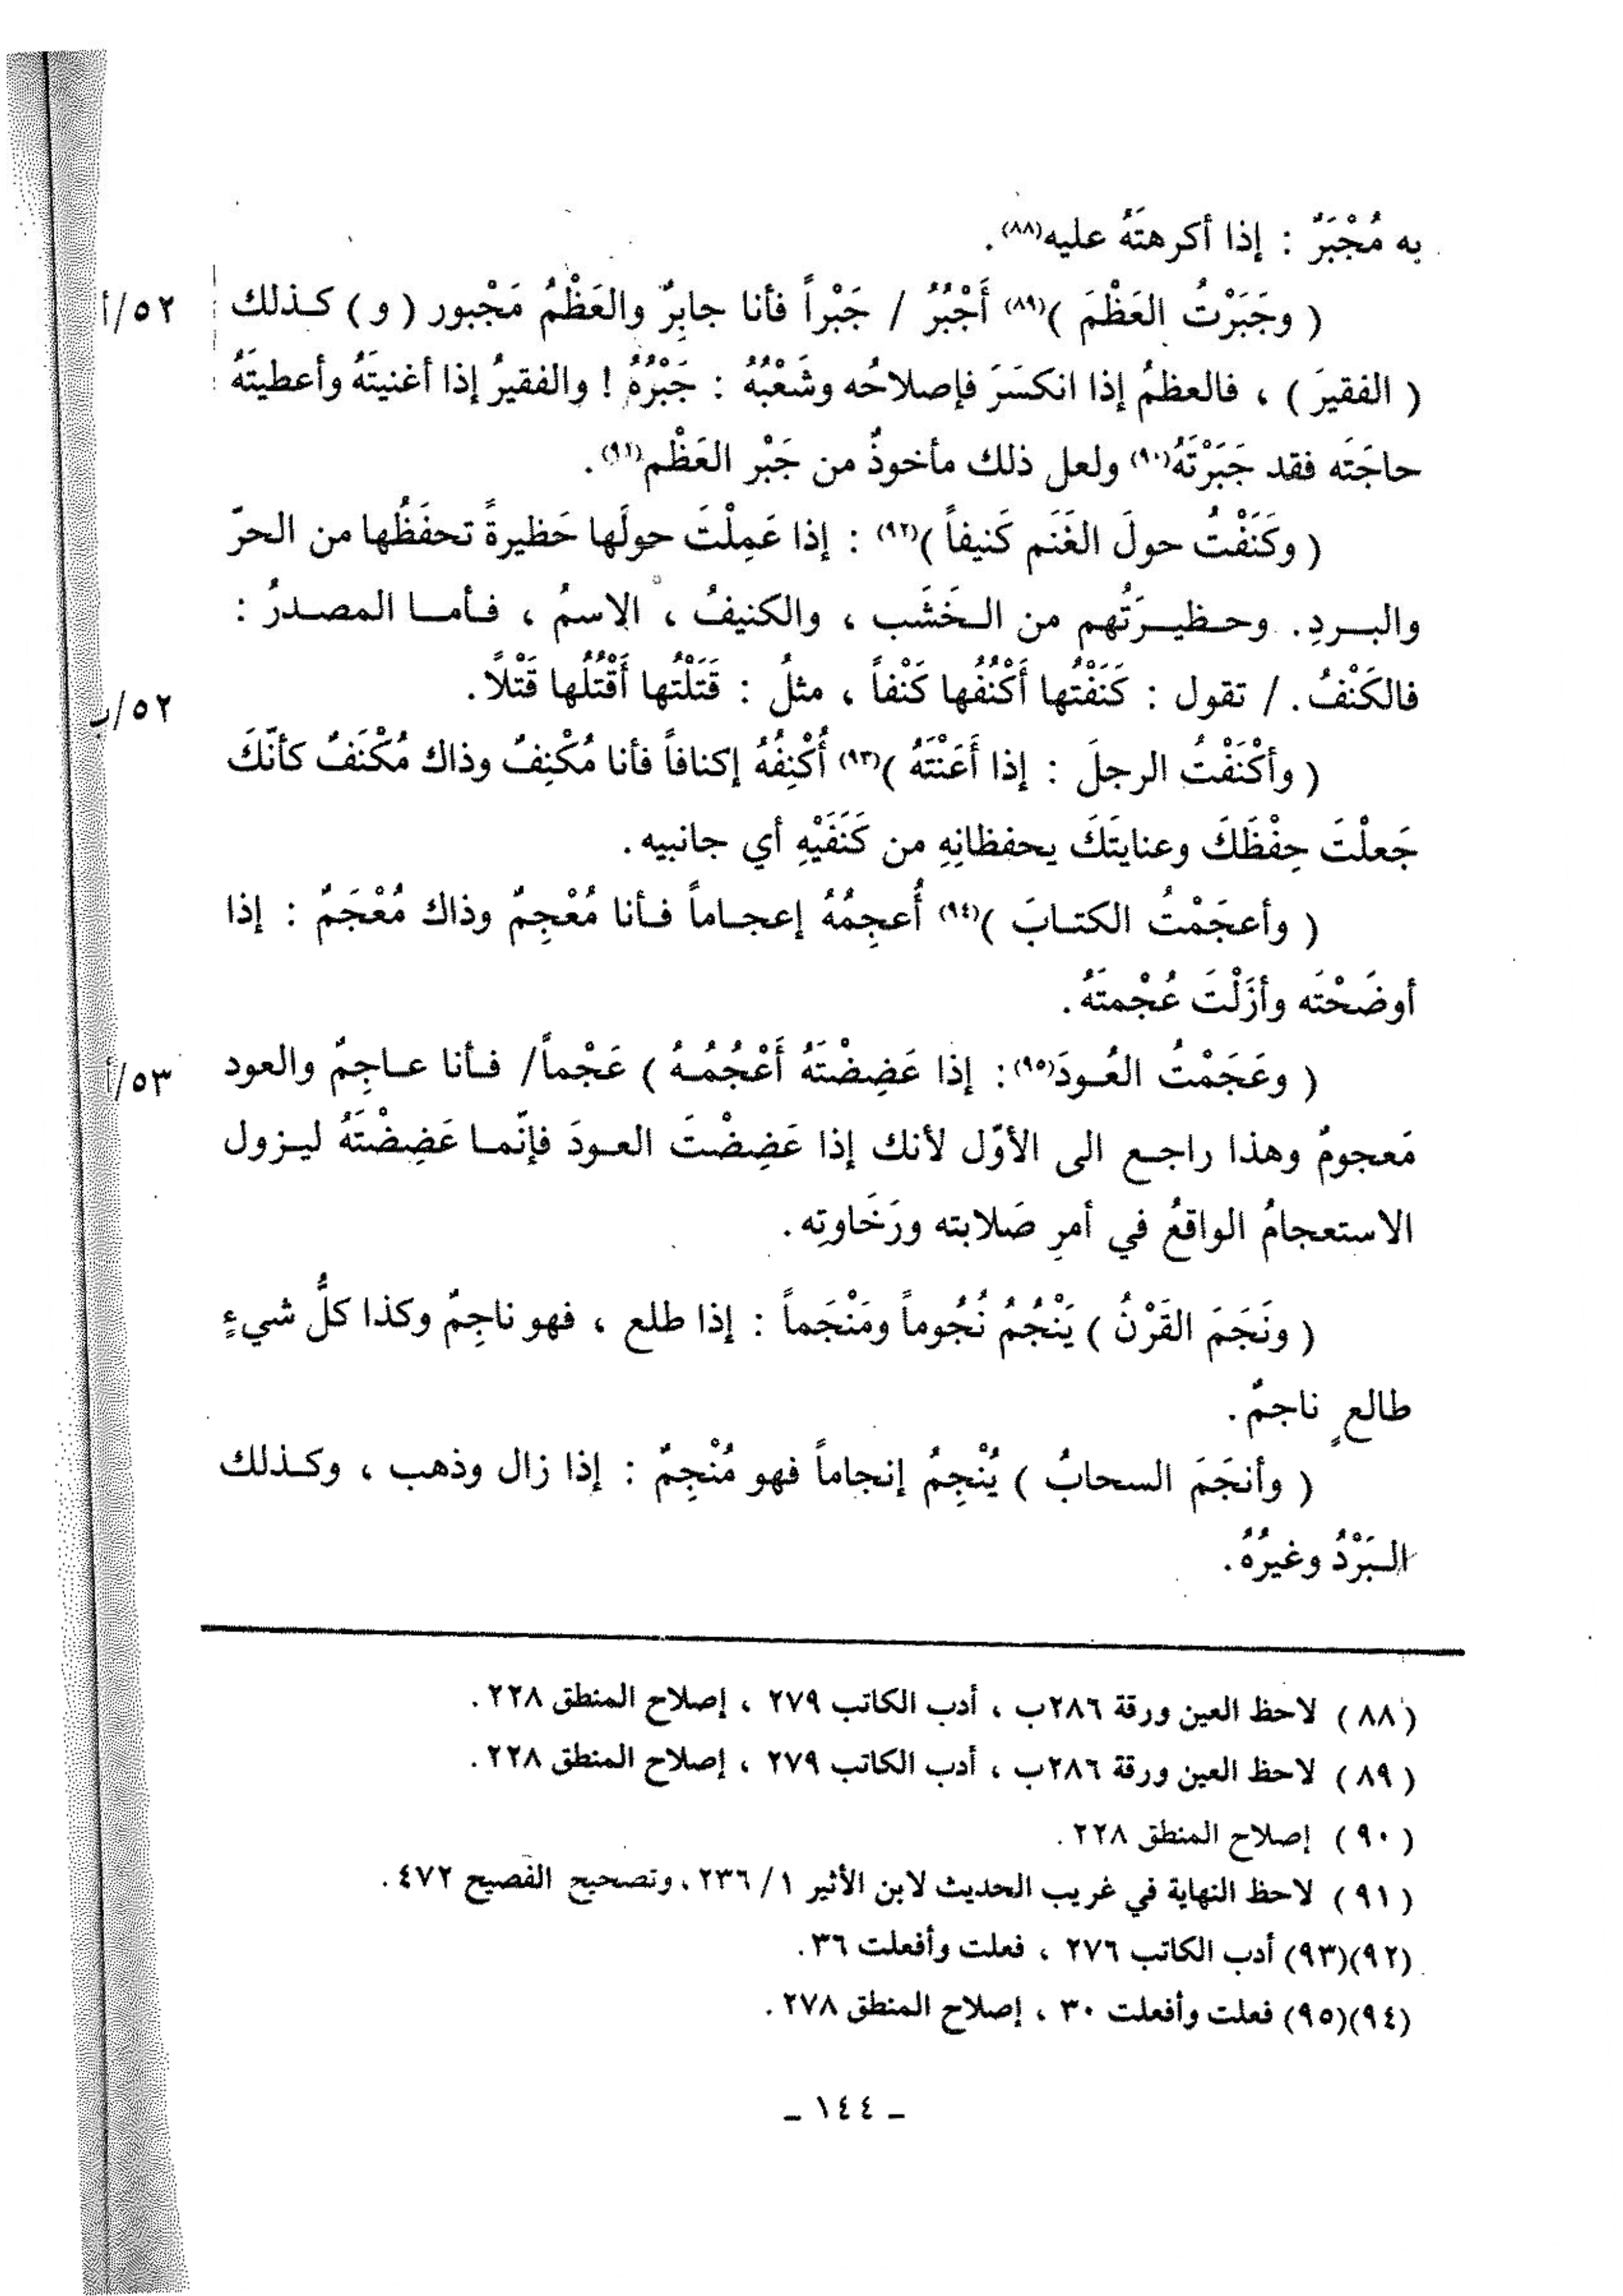 به مُجْبَرٌ : إذا أكرهتَهُ عليه(٨٨).
( وجَبَرْتُ العَظْمَ )(٨٩) أَجْبُرُ / جَبْراً فأنا جابِرٌ والعَظْمُ مَجْبور ( و ) كـذلك
٥٢/أ
( الفقيرَ ) ، فالعظمُ إذا انكسَرَ فإصلاحُه وشَعْبُهُ : جَبْرُهُ ! والفقيرُ إذا أغنيتَهُ وأعطيتَهُ
حاجَتَه فقد جَبَرْتَهُ(٩٠) ولعل ذلك مأخوذٌ من جَبْر العَظْم(٩١).
( وكَنَفْتُ حولَ الغَنَم كَنيفاً )(٩٢) : إذا عَمِلْتَ حولَها حَظيرةً تحفَظُها من الحرّ
والبـردِ. وحـظيـرَتُهم من الـخَشَب ، والكنيفُ ، الإسمُ ، فـأمـا المصـدرُ :
فالكَنْفُ. / تقول : كَنَفْتها أَكْنُفُها كَنْفاً ، مثلُ : قَتَلْتها أَقْتُلُها قَتْلاً.
٥٢/ب
( وأكْنَفْتُ الرجلَ : إذا أَعَنْتَهُ )(٩٣) أُكْنِفُهُ إكنافاً فأنا مُكْنِفٌ وذاك مُكْنَفٌ كأنّكَ
جَعلْتَ حِفْظَكَ وعنايتَكَ يحفظانِهِ من كَنَفَيْهِ أي جانبيه.
( وأعجَمْتُ الكتـابَ )(٩٤) أُعجِمُهُ إعجـاماً فـأنا مُعْجِمٌ وذاك مُعْجَمٌ : إذا
أوضَحْتَه وأزَلْتَ عُجْمتَهُ.
( وعَجَمْتُ العُـودَ(٩٥): إذا عَضِضْتَهُ أَعْجُمُـهُ ) عَجْماً/ فـأنا عـاجِمٌ والعود
٥٣/أ
مَعجومٌ وهذا راجـع الى الأوّل لأنك إذا عَضِضْتَ العـودَ فإنّمـا عَضِضْتَهُ ليـزول
الاستعجامُ الواقعُ في أمرِ صَلابته ورَخَاوتِه.
( ونَجَمَ القَرْنُ ) يَنْجُمُ نُجُوماً ومَنْجَماً : إذا طلع ، فهو ناجِمٌ وكذا كلُّ شيءٍ
طالعٍ ناجمٌ.
( وأنجَمَ السحابُ ) يُنْجِمُ إنجاماً فهو مُنْجِمٌ : إذا زال وذهب ، وكـذلك
البَرْدُ وغيرُهُ.
(٨٨) لاحظ العين ورقة ٢٨٦ب ، أدب الكاتب ٢٧٩ ، إصلاح المنطق ٢٢٨.
(٨٩) لاحظ العين ورقة ٢٨٦ب ، أدب الكاتب ٢٧٩ ، إصلاح المنطق ٢٢٨.
(٩٠) إصلاح المنطق ٢٢٨.
(٩١) لاحظ النهاية في غريب الحديث لابن الأثير ١/ ٢٣٦، وتصحيح الفصيح ٤٧٢.
(٩٢)(٩٣) أدب الكاتب ٢٧٦ ، فعلت وأفعلت ٣٦.
(٩٤)(٩٥) فعلت وأفعلت ٣٠ ، إصلاح المنطق ٢٧٨.
ـ ١٤٤ ـ